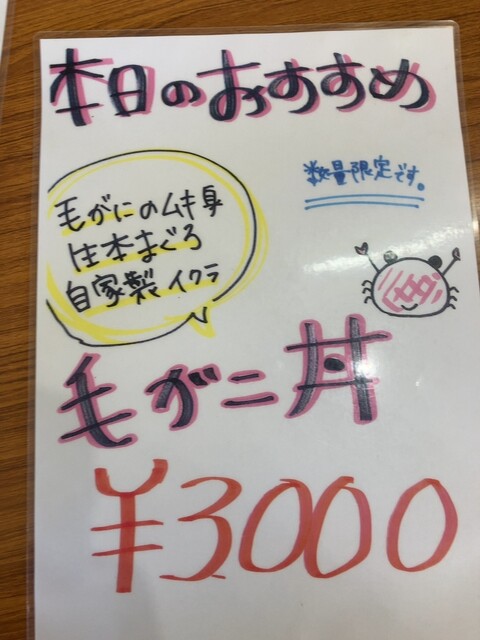 本日のおすすめ
数量限定です。
毛がにのムキ身
生本まぐろ
自家製イクラ
毛がニ丼
¥3000